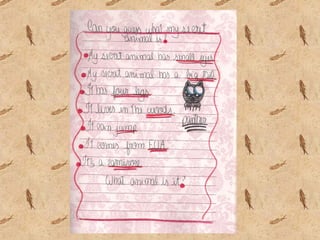 Can you guess what my secret
animal is.
My secret animal has small eyes
My secret animal has a big tail
It has four legs
It lives in the woods
It can jump
It comes from EUA
It's a carnivore
What animal is it?